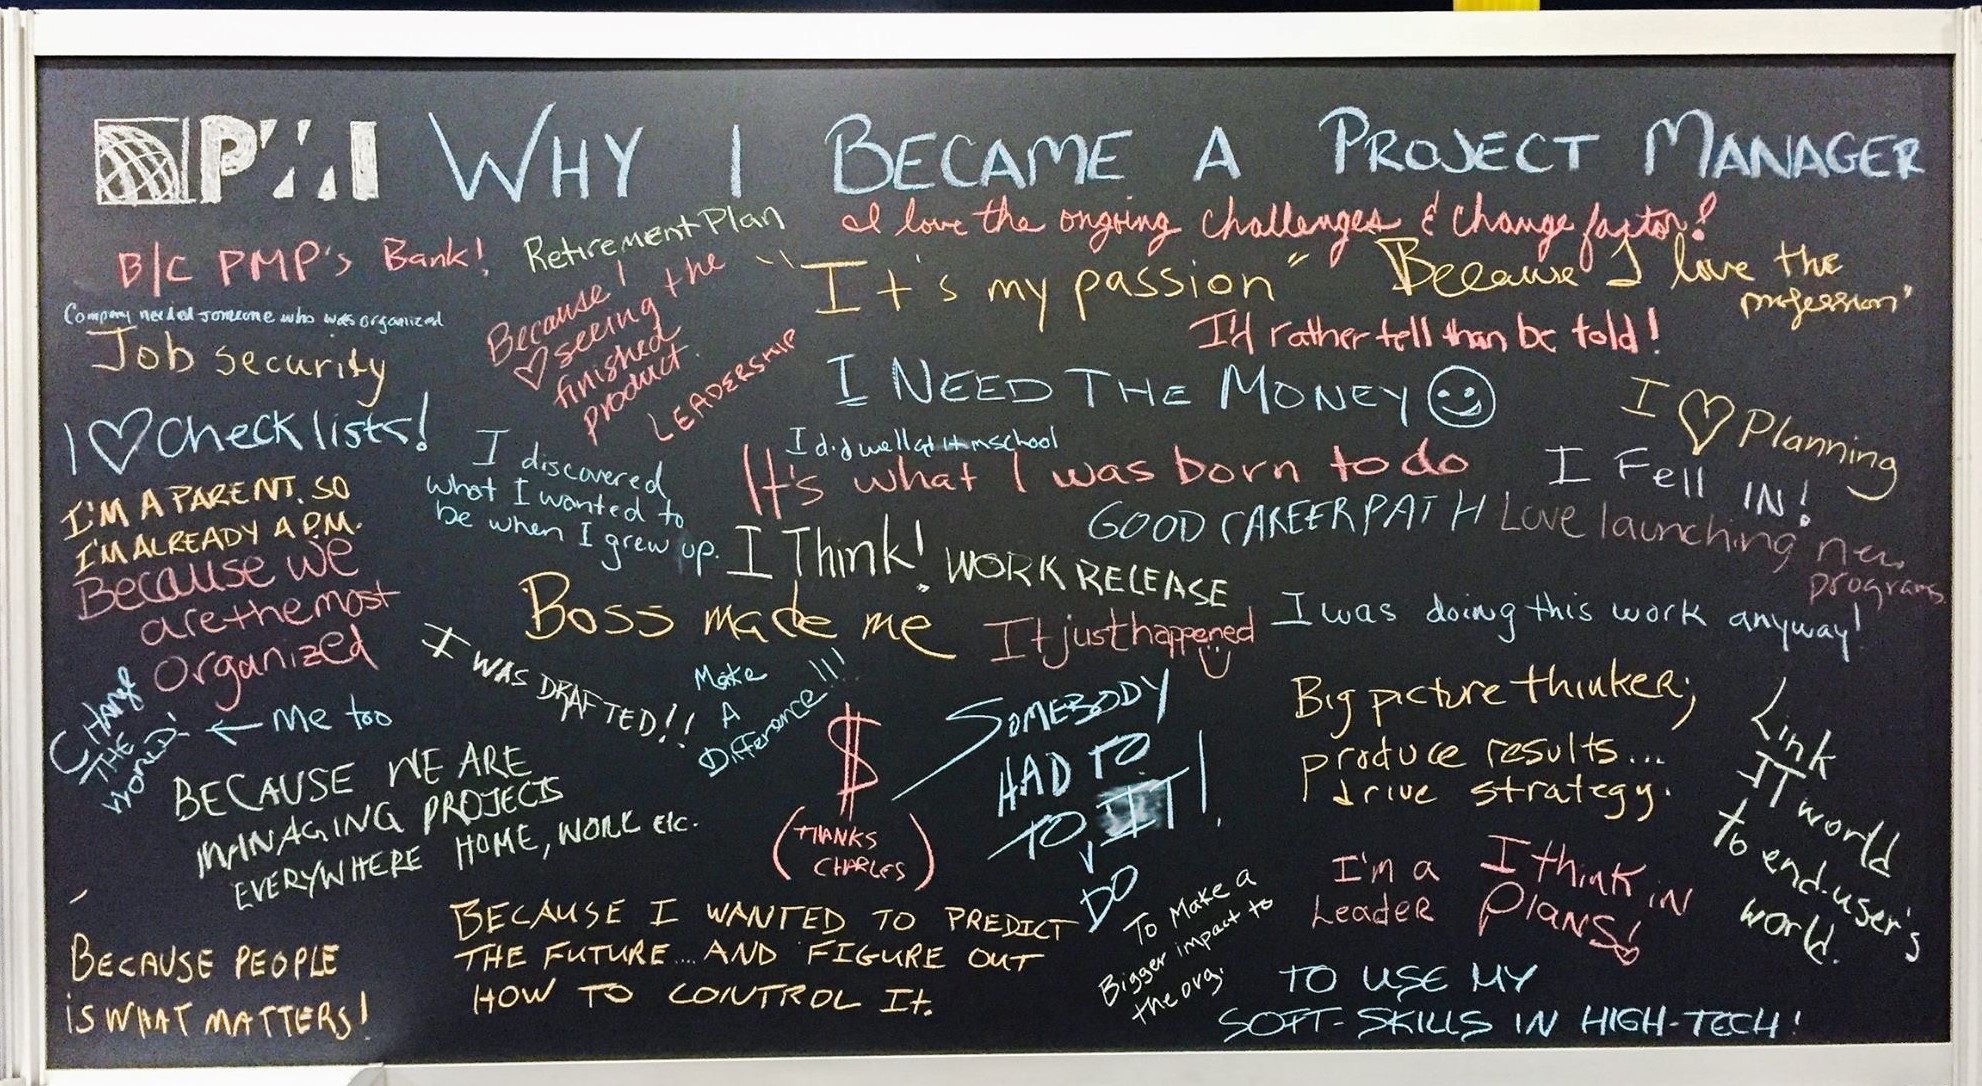 PMI WHY I BECAME A PROJECT MANAGER
I love the ongoing challenges & change factor!
B/C PMP's Bank!
Retirement Plan
"It's my passion"
"Because I love the
profession"
Company needed someone who was organized
Job security
Because I
♡ seeing the
finished
product.
LEADERSHIP
I'd rather tell than be told!
I NEED THE MONEY ☺
I ♡ Planning
I ♡ Checklists!
I discovered
what I wanted to
be when I grew up.
I did well at it in school
It's what I was born to do
I Fell
IN!
I'M A PARENT. SO
I'M ALREADY A P.M.
GOOD CAREER PATH
Love launching new
programs
I Think!
WORK RELEASE
Because we
are the most
organized
Boss made me
It just happened
I was doing this work anyway!
I WAS DRAFTED!!
Make
A
Difference!!!
CHANGE
THE
WORLD!
← Me too
$
(THANKS
CHARLES)
SOMEBODY
HAD TO
TO IT!
DO
Big picture thinker;
produce results...
drive strategy.
Link
IT world
to end-user's
world.
BECAUSE WE ARE
MANAGING PROJECTS
EVERYWHERE HOME, WORK etc.
I'm a
Leader
I think in
Plans!
BECAUSE PEOPLE
IS WHAT MATTERS!
BECAUSE I WANTED TO PREDICT
THE FUTURE.... AND FIGURE OUT
HOW TO CONTROL It.
To Make a
Bigger impact to
the org.
TO USE MY
SOFT-SKILLS IN HIGH-TECH!